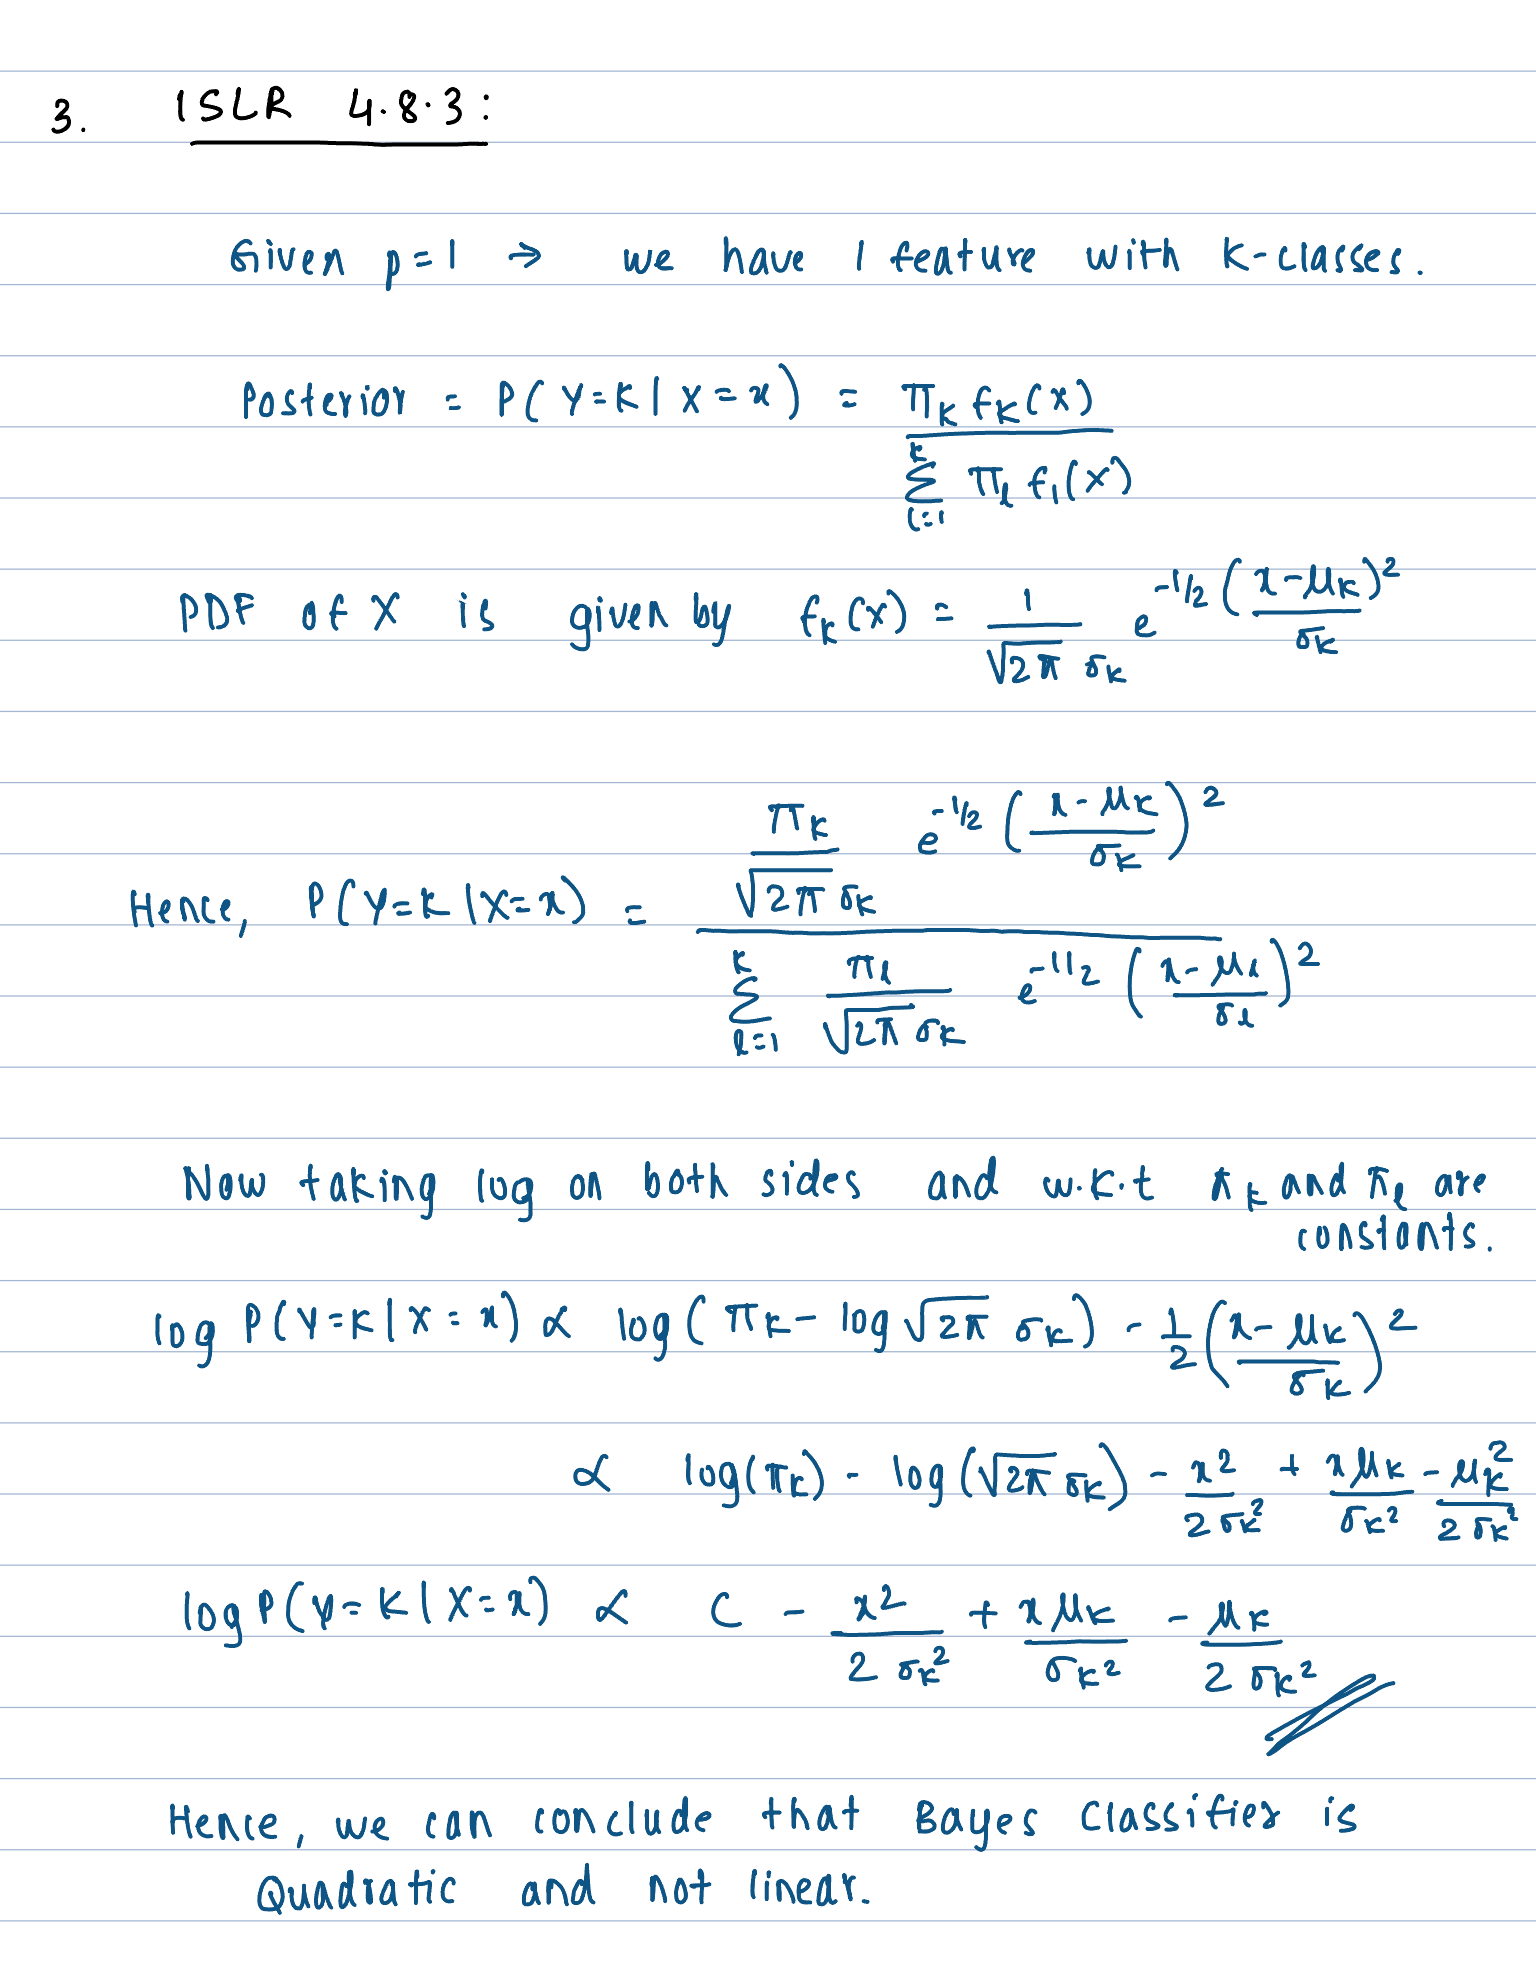 3. ISLR 4.8.3:
Given p=1 → we have 1 feature with K-classes.
Posterior = P(Y=K | X=x) = π_K f_K(x) / Σ_{l=1}^{K} π_l f_l(x)
PDF of X is given by f_K(x) = 1/(√2π σ_K) e^{-1/2 ((x-μ_K)/σ_K)^2}
Hence, P(Y=K | X=x) = [π_K/(√2π σ_K) e^{-1/2 ((x-μ_K)/σ_K)^2}] / [Σ_{l=1}^{K} π_l/(√2π σ_K) e^{-1/2 ((x-μ_l)/σ_l)^2}]
Now taking log on both sides and w.k.t π_K and π_l are
constants.
log P(Y=K | X=x) ∝ log(π_K - log √2π σ_K) - 1/2 ((x-μ_K)/σ_K)^2
∝ log(π_K) - log(√2π σ_K) - x^2/(2σ_K^2) + xμ_K/σ_K^2 - μ_K^2/(2σ_K^2)
log P(Y=K | X=x) ∝ C - x^2/(2σ_K^2) + xμ_K/σ_K^2 - μ_K/(2σ_K^2)
Hence, we can conclude that Bayes Classifier is
Quadratic and not linear.